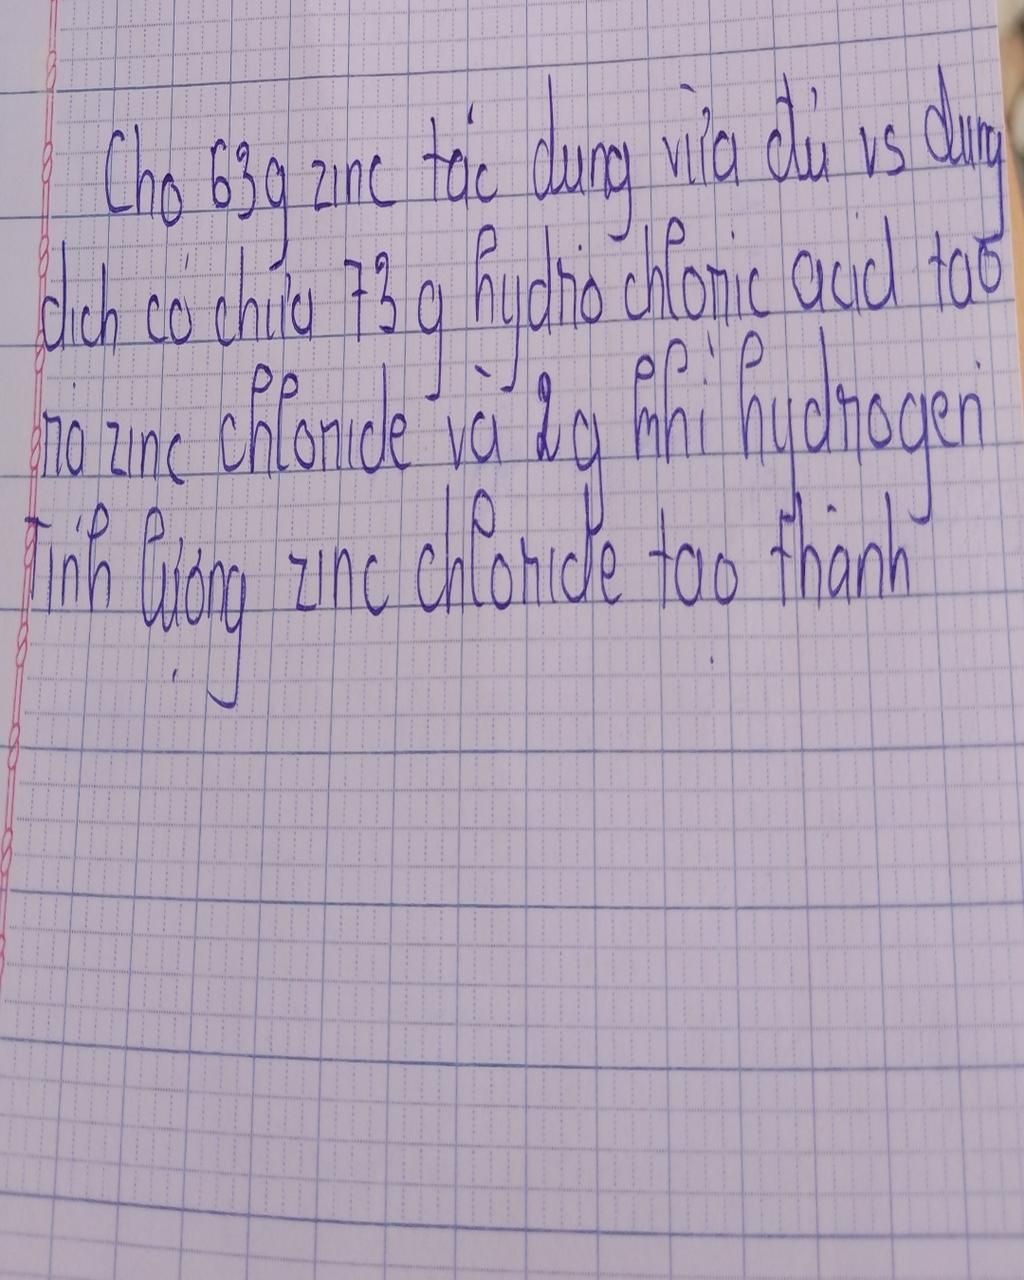 Cho 63g zinc tác dụng vừa đủ vs dung
dịch có chứa 73 g hydrochloric acid tạo
ra zinc chloride và 2g khí hydrogen
Tính lượng zinc chloride tạo thành